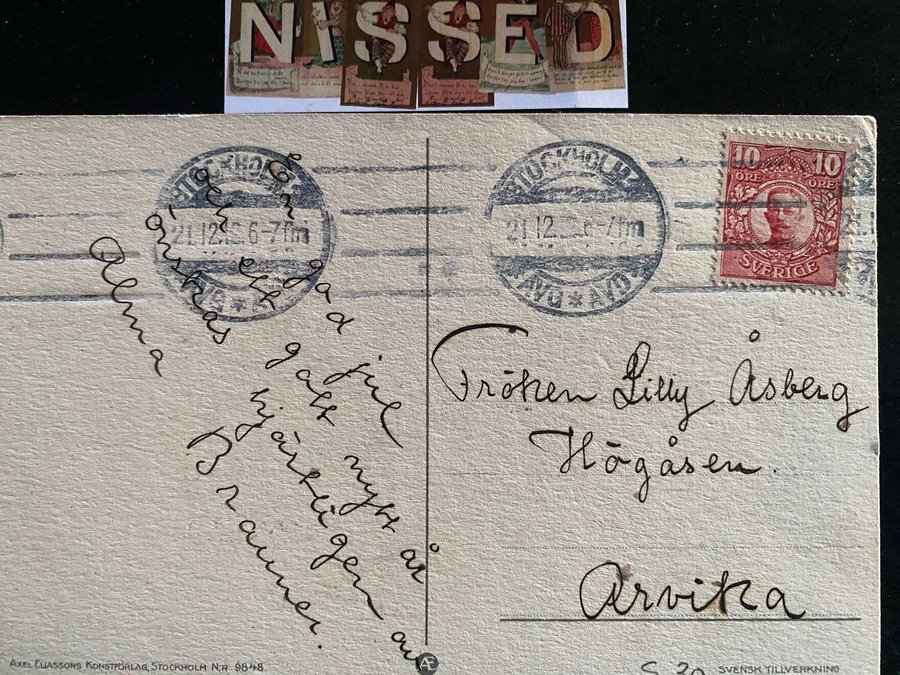 NISSED
STOCKHOLM
21.12. 6-7 fm
AVD * AVD
STOCKHOLM
21.12. 6-7 fm
AVD * AVD
10 10
ÖRE ÖRE
SVERIGE
En god jul
och ett gott nytt år
önskas hjärtligen av
Alma Brunner.
Fröken Lilly Åsberg
Högåsen.
Arvika
AXEL ELIASSONS KONSTFÖRLAG, STOCKHOLM N:R 9848.
Æ
SVENSK TILLVERKNING